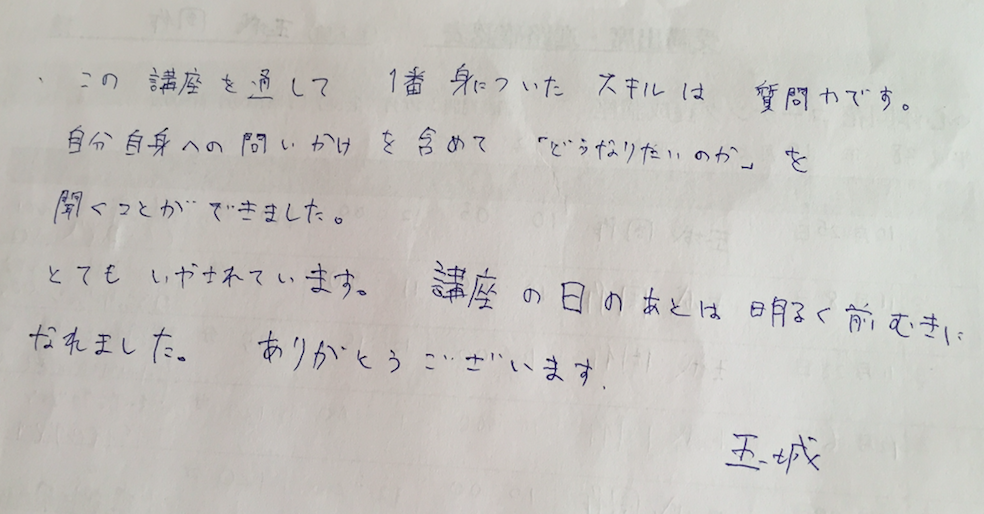 この 講座を通して 1番 身についた スキルは 質問力です。
自分自身への問いかけを含めて「どうなりたいのか」を
聞くことができました。
とても いやされています。 講座の日のあとは明るく前むきに
なれました。 ありがとうございます.
玉城